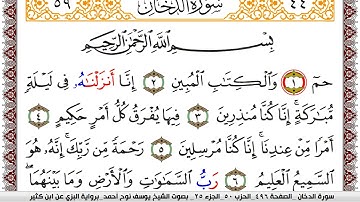 ٤٤ سُورَةُ الدُّخَانِ ٥٩
بِسْمِ اللَّهِ الرَّحْمَٰنِ الرَّحِيمِ
حمٓ ١ وَالْكِتَابِ الْمُبِينِ ٢ إِنَّا أَنزَلْنَٰهُۥ فِي لَيْلَةٍ
مُّبَٰرَكَةٍ إِنَّا كُنَّا مُنذِرِينَ ٣ فِيهَا يُفْرَقُ كُلُّ أَمْرٍ حَكِيمٍ ٤
أَمْرًا مِّنْ عِندِنَا إِنَّا كُنَّا مُرْسِلِينَ ٥ رَحْمَةً مِّن رَّبِّكَ إِنَّهُۥ هُوَ
السَّمِيعُ الْعَلِيمُ ٦ رَبُّ السَّمَٰوَٰتِ وَالْأَرْضِ وَمَا بَيْنَهُمَا
سورة الدخان _الصفحة ٤٩٦ _حزب ٥٠ _الجزء ٢٥ _ بصوت الشيخ يوسف نوح احمد _برواية البزي عن ابن كثير